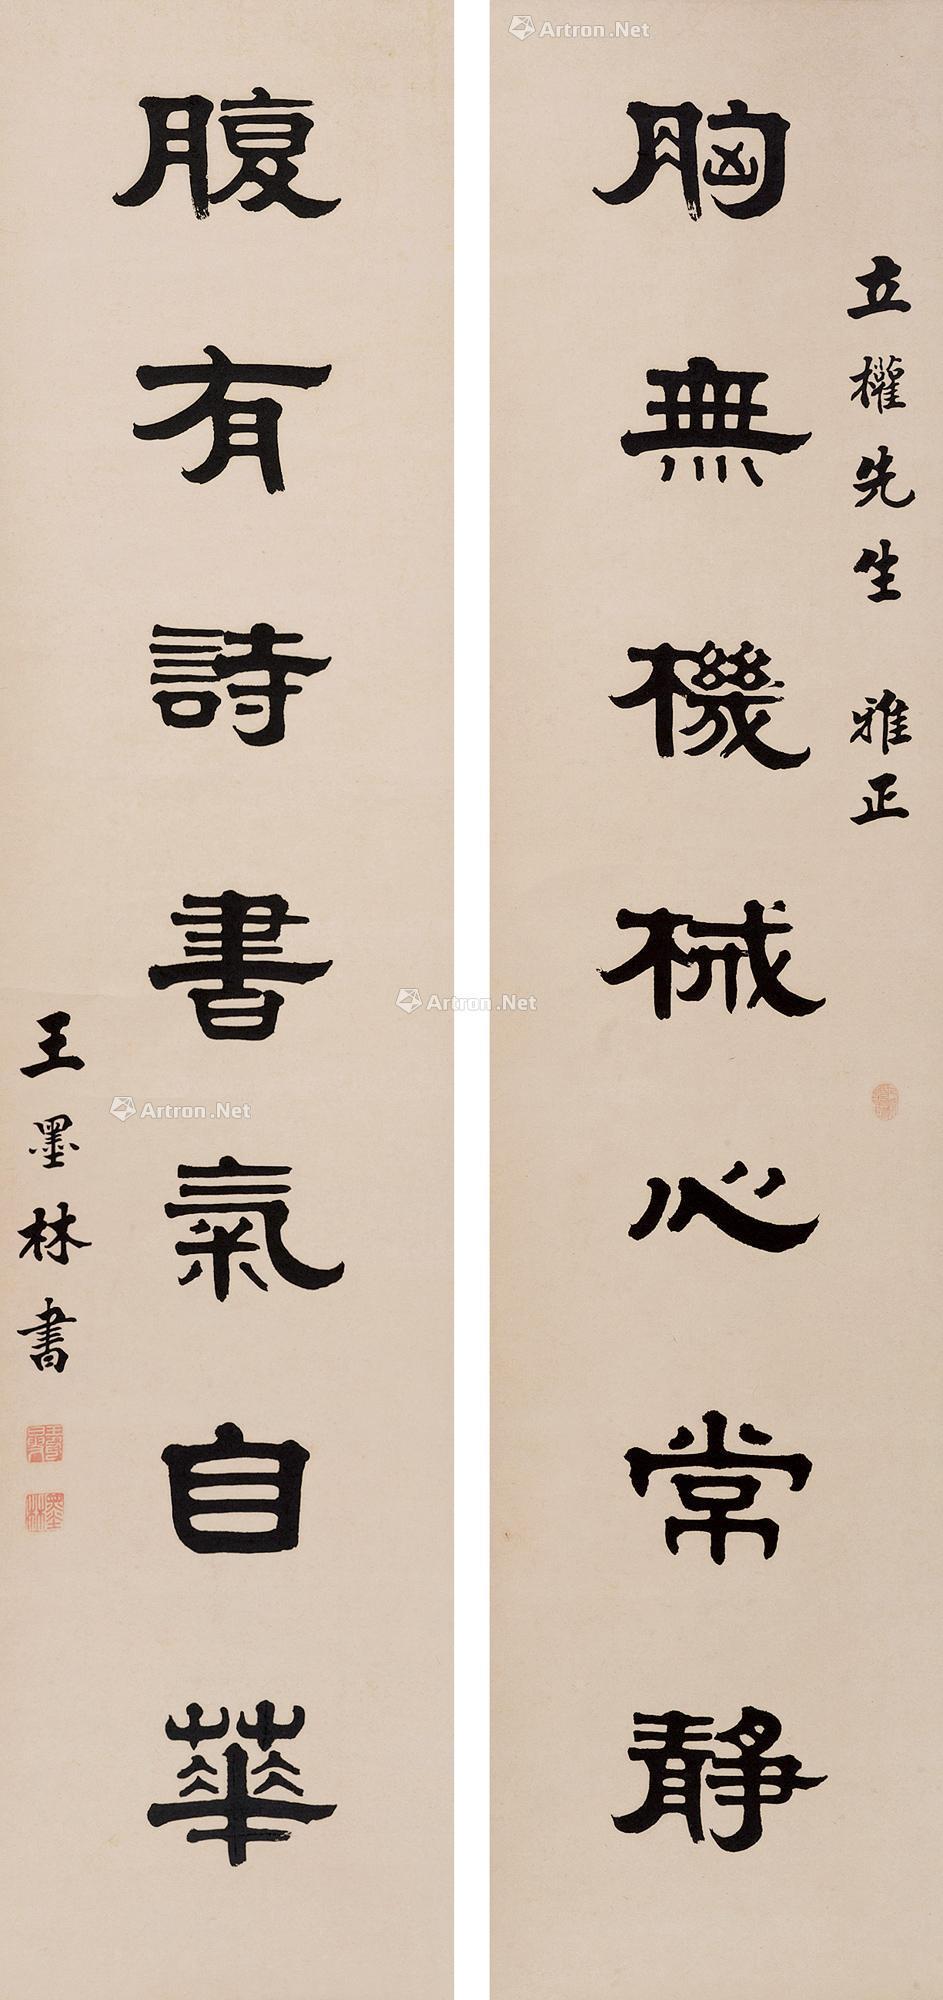 胸無機械心常靜
立權先生 雅正
腹有詩書氣自華
王墨林書
墨林
Artron.Net
Artron.Net
Artron.Net